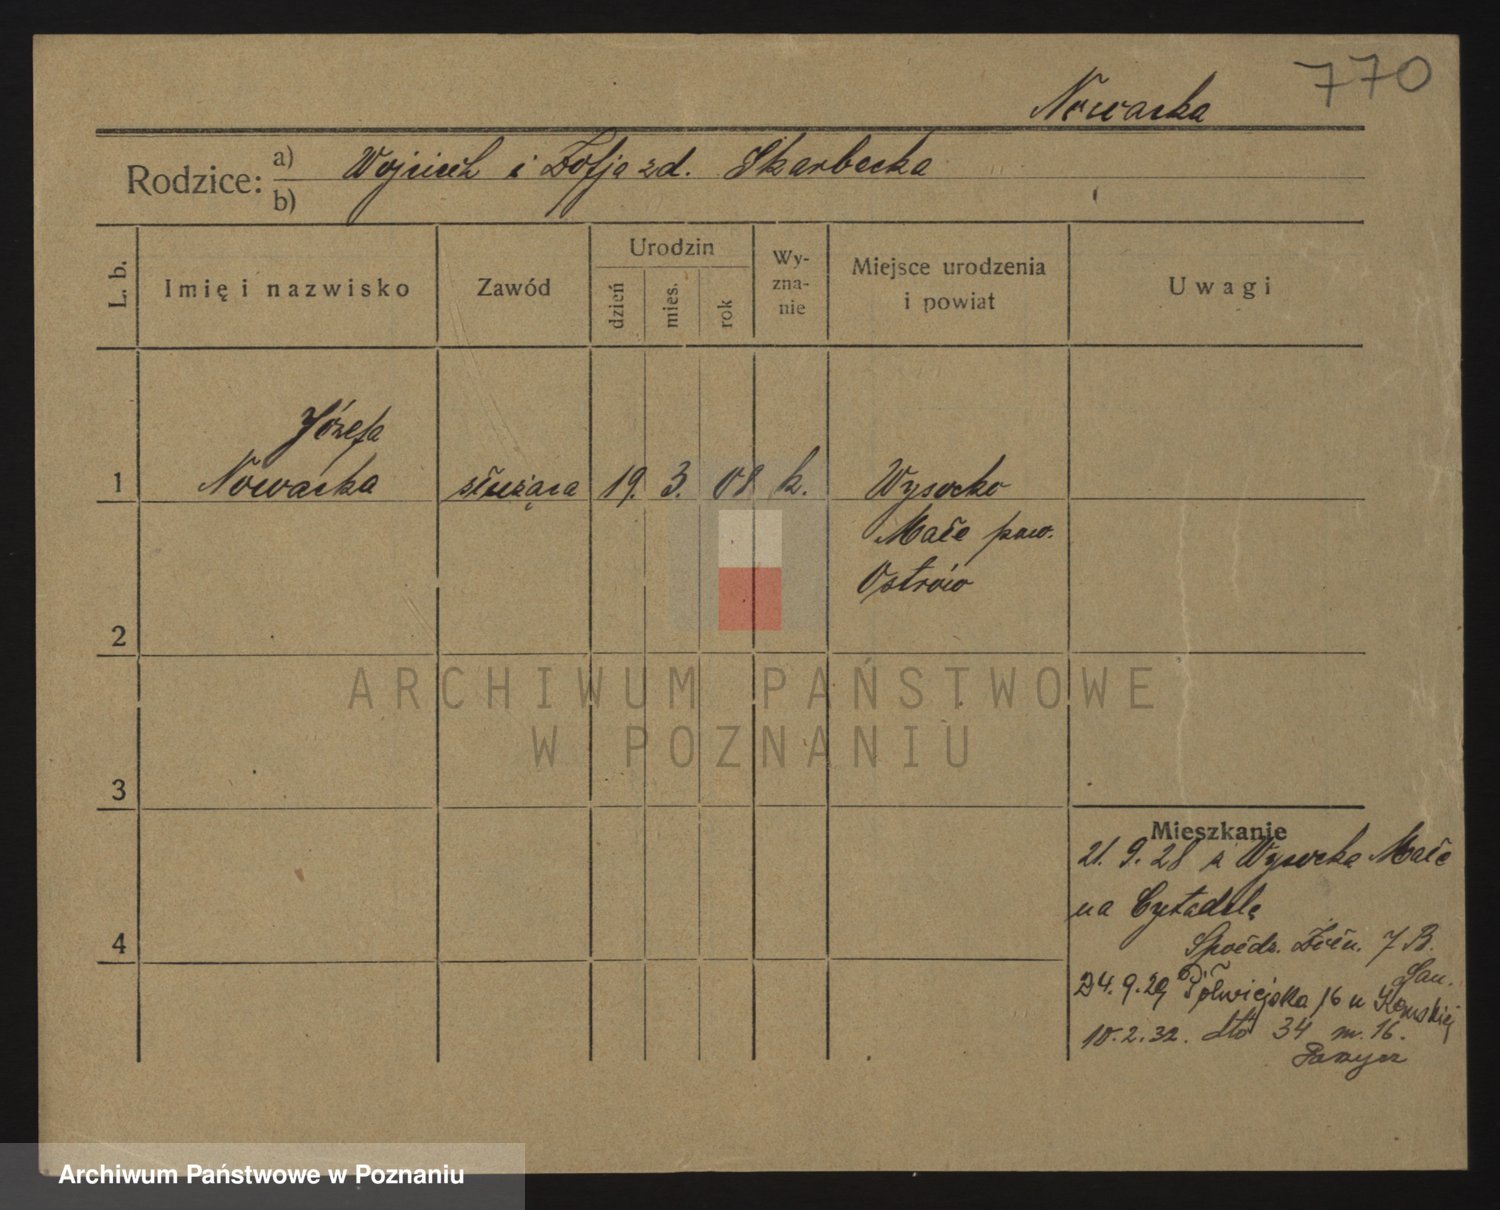 770
Nowacka
Rodzice: a) Wojciech i Zofja zd. Skarbecka
b)
L. b.
Imię i nazwisko
Zawód
Urodzin
dzień
mies.
rok
Wy-
zna-
nie
Miejsce urodzenia
i powiat
Uwagi
Józefa
1 Nowacka służąca 19. 3. 08 k. Wysocko
Małe pow.
Ostrów
2
3
4
ARCHIWUM PAŃSTWOWE
W POZNANIU
Mieszkanie
21. 9. 28 z Wysocka Małe
na Cytadelę
Spółdz. Żołn. 7 B.
San.
24. 9. 29 Półwiejska 16 u
10. 2. 32. dto 34 m. 16.
Archiwum Państwowe w Poznaniu